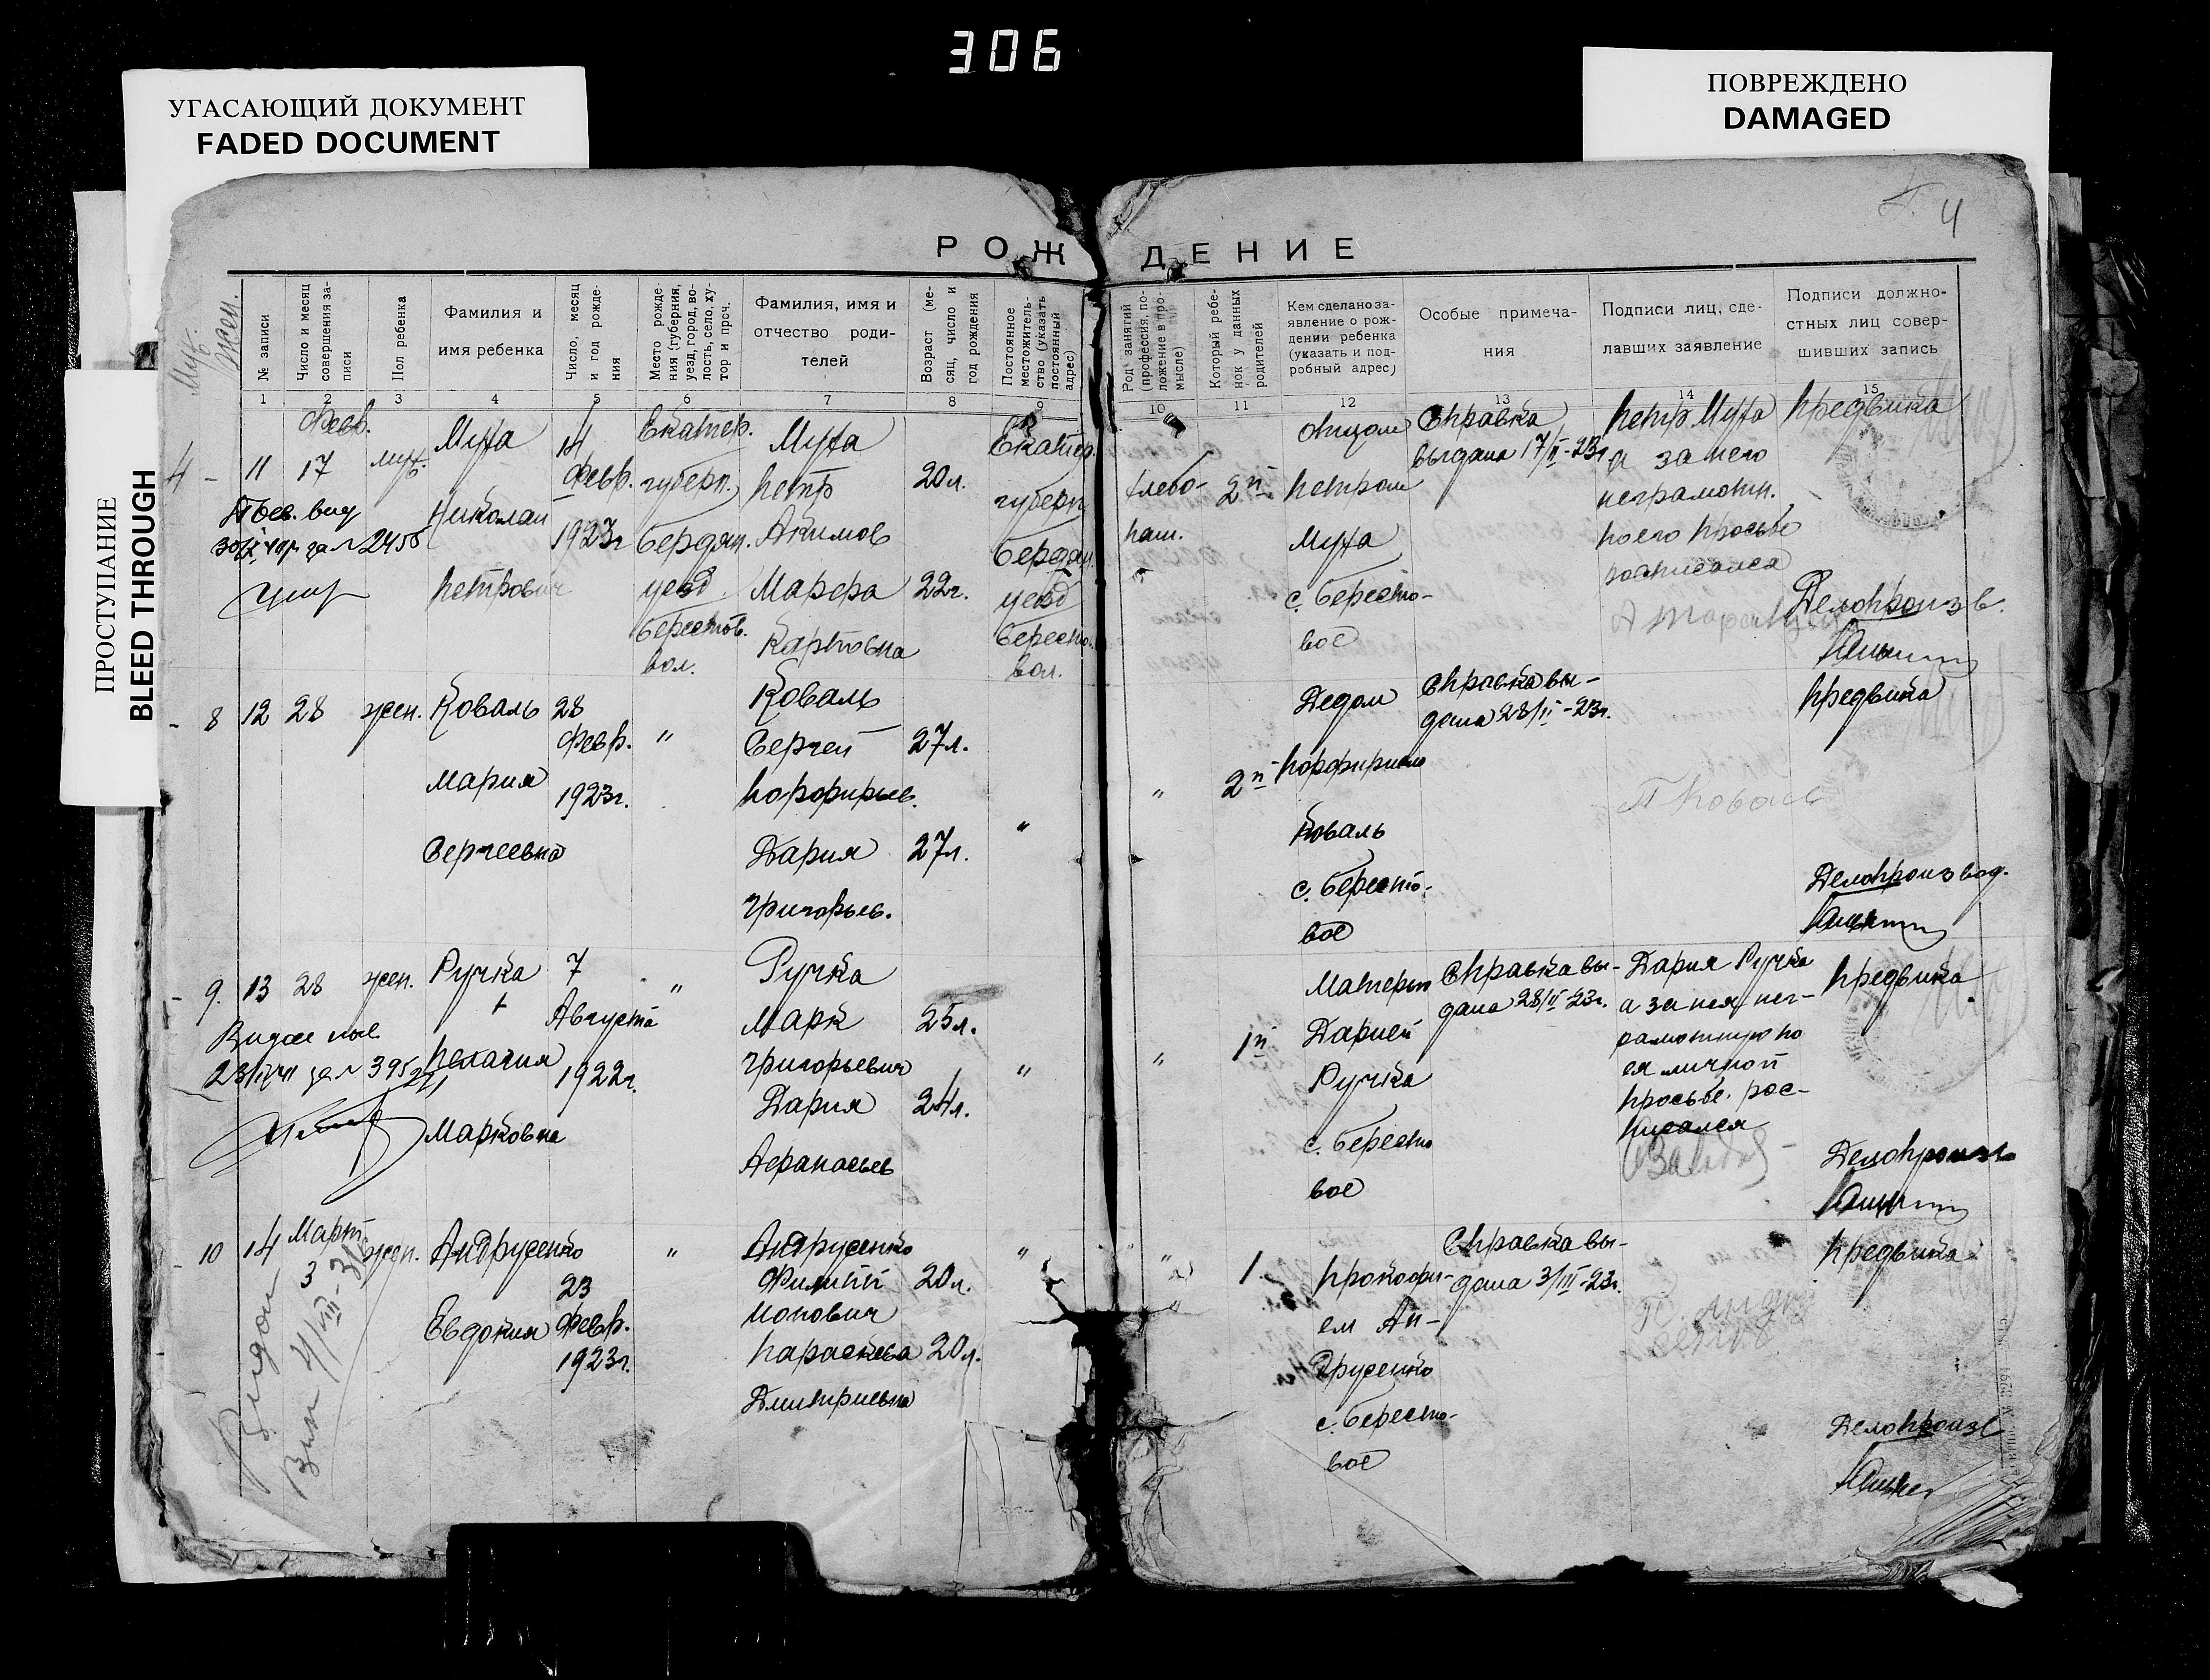 306
УГАСАЮЩИЙ ДОКУМЕНТ
FADED DOCUMENT
ПОВРЕЖДЕНО
DAMAGED
ПРОСТУПАНИЕ
BLEED THROUGH
4
РОЖДЕНИЕ
Муж.
Жен.
№ записи
Число и месяц совершения записи
Пол ребенка
Фамилия и
имя ребенка
Число, месяц и год рождения
Место рождения (губерния, уезд, город, волость, село, хутор и проч.
Фамилия, имя и
отчество роди-
телей
Возраст (месяц, число и год рождения
Постоянное местожительство (указать постоянный адрес)
Род занятий (профессия, положение в промысле)
Который ребенок у данных родителей
Кем сделано за-
явление о рож-
дении ребенка
(указать и под-
робный адрес)
Особые примеча-
ния
Подписи лиц, сде-
лавших заявление
Подписи должно-
стных лиц совер-
шивших запись
1 2 3 4 5 6 7 8 9 10 11 12 13 14 15
4 - 11
Февр.
17
муж.
Муха
Николай
Петрович
14
Февр.
1923г
Екатер.
губерн.
Бердян.
уезд.
Берестов.
вол.
Муха
Петр
Акимов
Марфа
Карповна
20л.
22г.
Екатер.
губерн
Бердян.
уезд
Бересто.
вол.
хлебо-
паш.
2й
отцом
Петром
Муха
с. Бересто-
вое
Справка
выдана 17/II-23г
Петр Муха
а за него
неграмотн.
по его просьбе
росписался
Предвика
Делопроизв.
- 8 12 28 жен.
Коваль
Мария
Сергеевна
28
Февр.
1923г.
"
Коваль
Сергей
Порфирьев.
Дария
Григорьев.
27л.
27л.
"
"
2й
Дедом
Порфирием
Коваль
с. Бересто-
вое
Справка вы-
дана 28/II-23г.
П Коваль
Предвика
Делопроизвод.
- 9. 13 28 жен.
Ручка
Пелагия
Марковна
7
Августа
1922г.
"
Ручка
Марк
Григорьевич
Дария
Афанасьев
25л.
24л.
"
"
1й
Матерью
Дарией
Ручка
с. Бересто
вое
Справка вы-
дана 28/II-23г.
Дария Ручка
а за нея нег-
рамотную по
ея личной
просьбе рос-
писался
Предвика
Делопроизв
- 10 14
Март
3
жен.
Андрусенко
Евдокия
23
Февр.
1923г.
"
Андрусенко
Филипп
Ионович
Параскева
Дмитриевна
20л.
20л.
"
"
1.
Прокофи-
ем Ан-
друсенко
с. Бересто-
вое
Справка вы-
дана 3/III-23г.
Предвика
Делопроизв